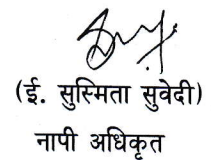 (ई. सुस्मिता सुवेदी)
नापी अधिकृत